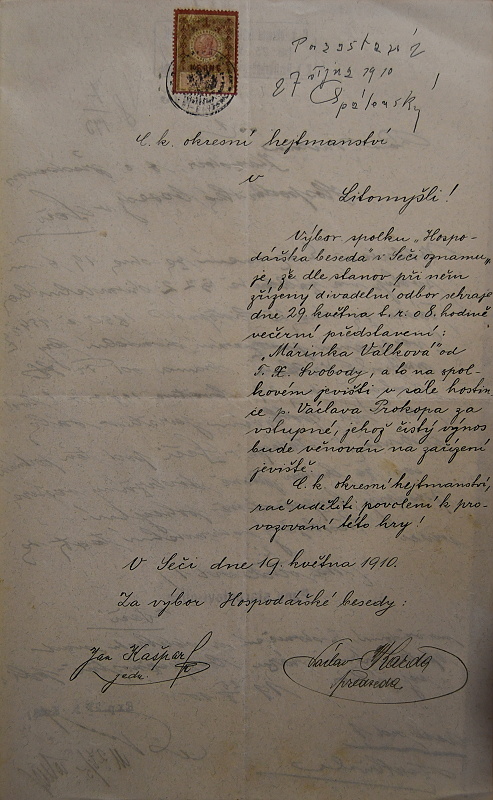 27 října 1910
C. k. okresní hejtmanství
v
Litomyšli!
Výbor spolku „Hospo-
dářská beseda" v Seči oznamu-
je, že dle stanov při něm
zřízený divadelní odbor sehraje
dne 29. května t. r. o 8. hodině
večerní představení:
„Márinka Válková" od
F. X. Svobody, a to na spol-
kovém jevišti v sále hostin-
ce p. Václava Prokopa za
vstupné, jehož čistý výnos
bude věnován na zařízení
jeviště.
C. k. okresní hejtmanství,
rač uděliti povolení k pro-
vozování této hry!
V Seči dne 19. května 1910.
Za výbor Hospodářské besedy:
Jan Kašpar
jedn.
Václav
předseda